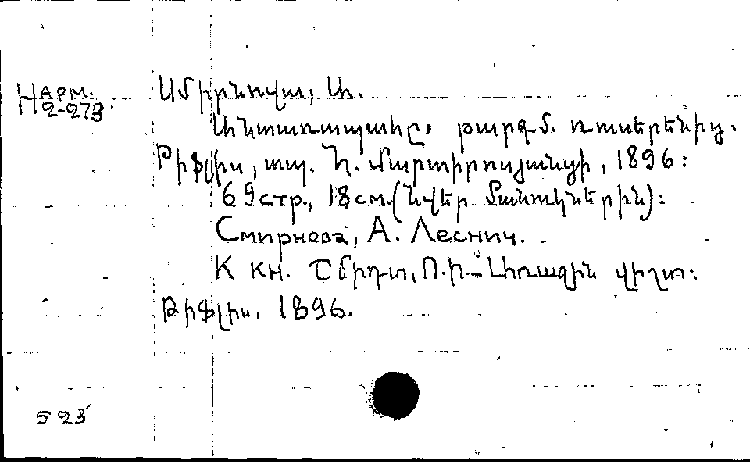 Нарм. 2-273
Սմիրնովա, Ա.
Անտառապահը, թարգմ. ռուսերենից.
Թիֆլիս, տպ. Հ. Մարտիրոսյանցի, 1896:
69 стр., 18 см. (Նվեր մանուկներին):
Смирнова, А. Лесник.
К кн. Շմիդտ, Ո.Ի— Առաջին վիշտ:
Թիֆլիս. 1896.
523